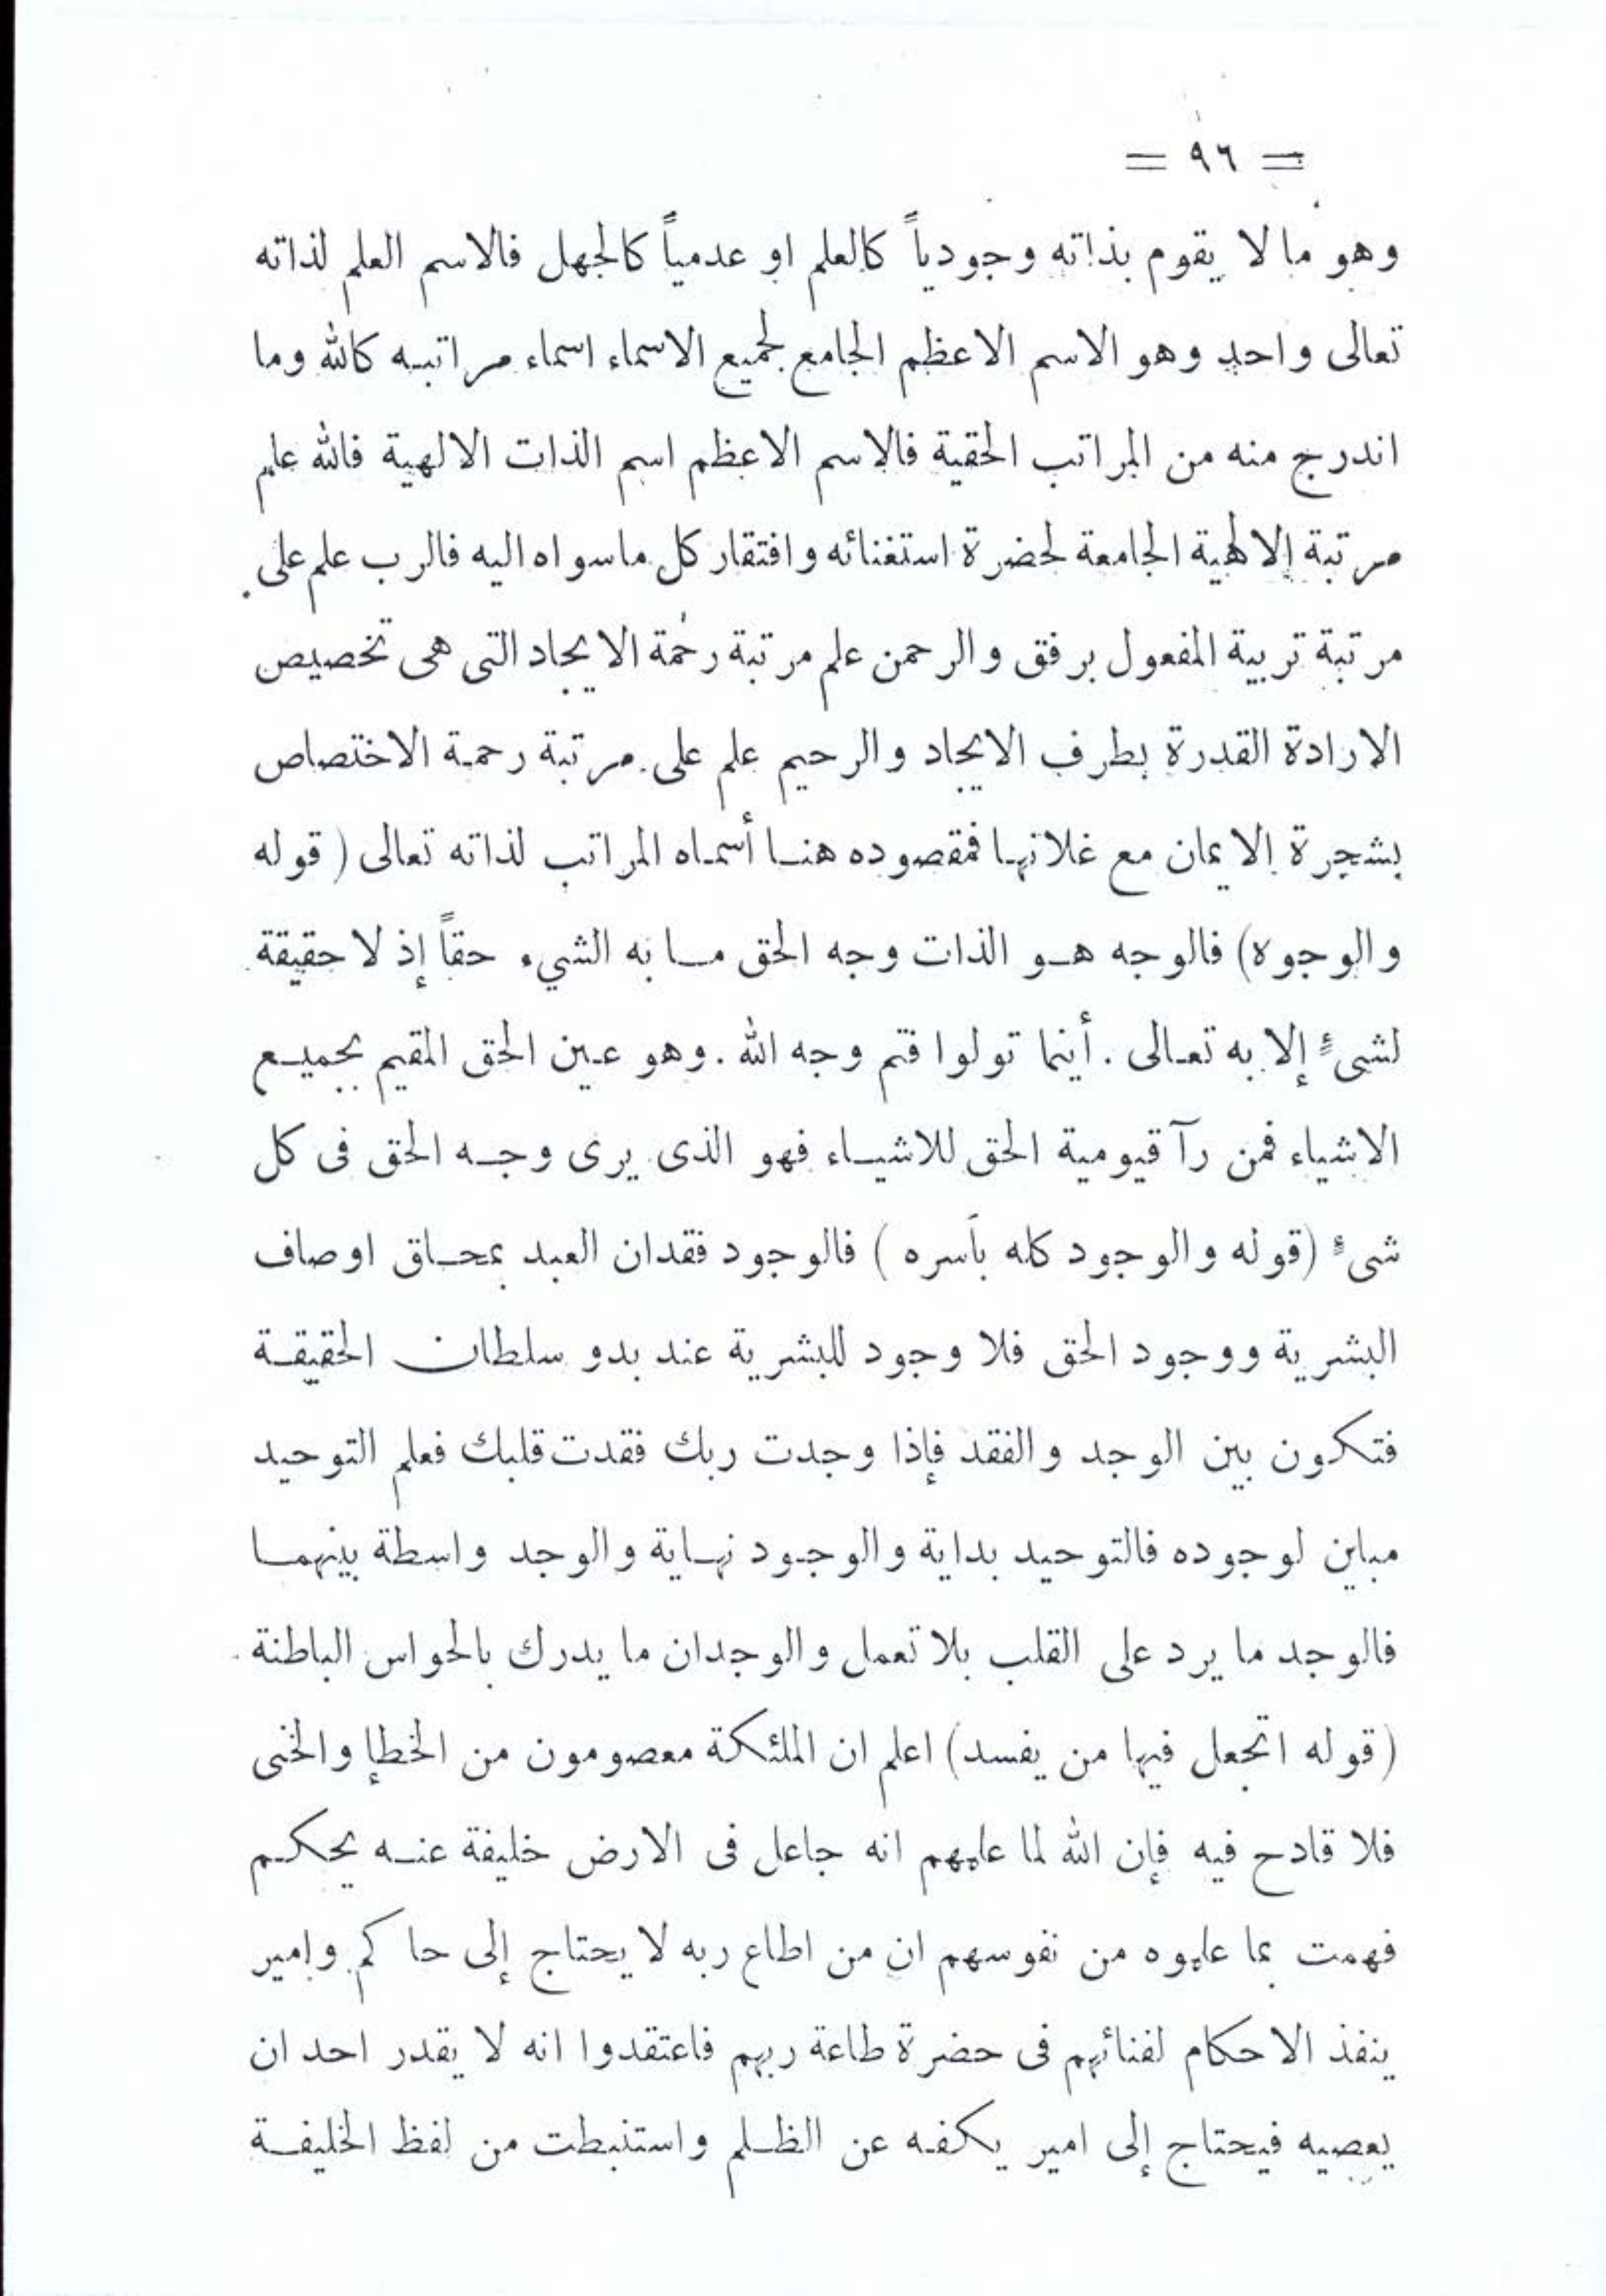 = ٩٦ =
وهو ما لا يقوم بذاته وجودياً كالعلم او عدمياً كالجهل فالاسم العلم لذاته
تعالى واحد وهو الاسم الاعظم الجامع لجميع الاسماء اسماء مراتبه كالله وما
اندرج منه من المراتب الحقية فالاسم الاعظم اسم الذات الالهية فالله علم
مرتبة الالهية الجامعة لحضرة استغنائه وافتقار كل ماسواه اليه فالرب علم على
مرتبة تربية المفعول برفق والرحمن علم مرتبة رحمة الايجاد التى هى تخصيص
الارادة القدرة بطرف الايجاد والرحيم علم على مرتبة رحمة الاختصاص
بشجرة الايمان مع غلاتها فمقصوده هنا أسماه المراتب لذاته تعالى (قوله
والوجوه) فالوجه هو الذات وجه الحق ما به الشيء حقاً إذ لا حقيقة
لشىءٍ إلا به تعالى . أينما تولوا فثم وجه الله . وهو عين الحق المقيم بجميع
الاشياء فمن رآ قيومية الحق للاشياء فهو الذى يرى وجه الحق فى كل
شىءٍ (قوله والوجود كله بأسره) فالوجود فقدان العبد بمحاق اوصاف
البشرية ووجود الحق فلا وجود للبشرية عند بدو سلطان الحقيقة
فتكون بين الوجد والفقد فإذا وجدت ربك فقدت قلبك فعلم التوحيد
مباين لوجوده فالتوحيد بداية والوجود نهاية والوجد واسطة بينهما
فالوجد ما يرد على القلب بلا تعمل والوجدان ما يدرك بالحواس الباطنة
(قوله اتجعل فيها من يفسد) اعلم ان الملئكة معصومون من الخطإ والخنى
فلا قادح فيه فإن الله لما علمهم انه جاعل فى الارض خليفة عنه يحكم
فهمت بما علموه من نفوسهم ان من اطاع ربه لا يحتاج إلى حاكم وامير
ينفذ الاحكام لفنائهم فى حضرة طاعة ربهم فاعتقدوا انه لا يقدر احد ان
يعصيه فيحتاج إلى امير يكفه عن الظلم واستنبطت من لفظ الخليفة